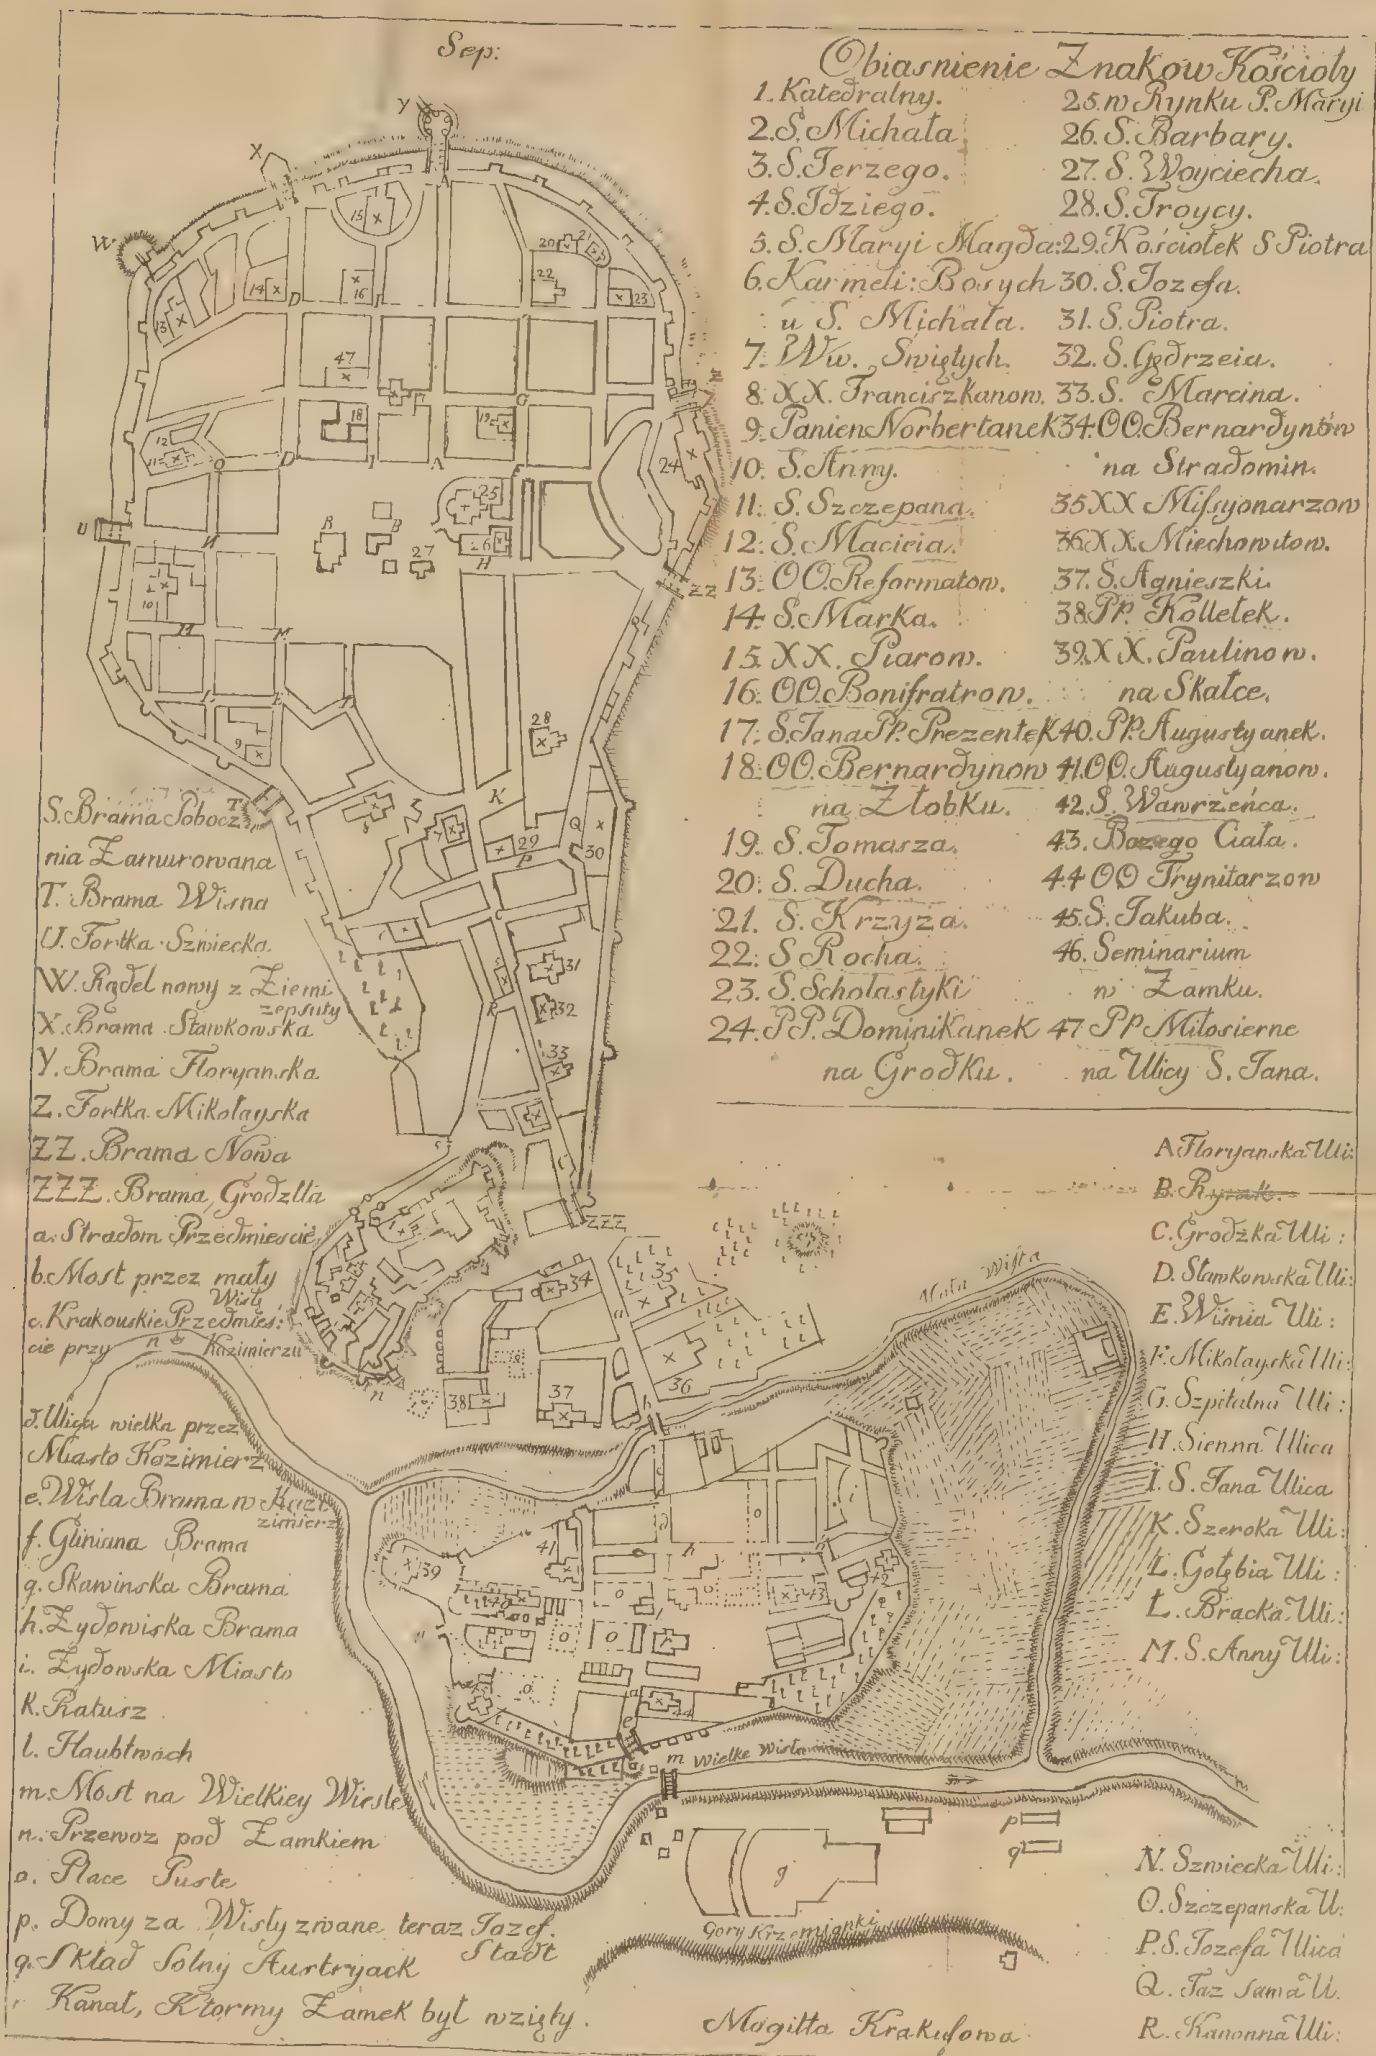 Sep:
Obiasnienie Znakow Kościoły
1. Katedralny.
2. S. Michała
3. S. Ierzego.
4. S. Idziego.
5. S. Maryi Magda:
6. Karmeli: Bosych
u S. Michała.
7. Ww. Swiętych.
8. XX. Franciszkanow.
9. Panien Norbertanek
10. S. Anny.
11. S. Szczepana.
12. S. Macieia.
13. OO. Reformatow.
14. S. Marka.
15. XX. Piarow.
16. OO. Bonifratrow.
17. S. Iana PP. Prezentek
18. OO. Bernardynow
na Złobku.
19. S. Tomasza.
20. S. Ducha.
21. S. Krzyża.
22. S Rocha.
23. S. Scholastyki
24. PP. Dominikanek
na Grodku.
25. w Rynku P. Maryi
26. S. Barbary.
27. S. Woyciecha.
28. S. Troycy.
29. Kościołek S Piotra
30. S. Iozefa.
31. S. Piotra.
32. S. Gędrzeia.
33. S. Marcina.
34. OO. Bernardynów
na Stradomin.
35 XX Missyonarzow
36 XX. Miechowitow.
37. S. Agnieszki.
38 Pp. Kolletek.
39. XX. Paulinow.
na Skałce.
40. PP. Augustyanek.
41. OO. Augustyanow.
42. S. Wawrzeńca.
43. Bozego Ciała.
44 OO Trynitarzow
45. S. Iakuba.
46. Seminarium
w Zamku.
47 PP Miłosierne
na Ulicy S. Iana.
S. Brama Pobocz
nia Zamurowana
T. Brama Wisna
U. Fortka Szwiecka
W. Rądel nowy z Ziemi
zepsuty
X. Brama Sławkowska
Y. Brama Floryanska
Z. Fortka Mikołayska
ZZ. Brama Nowa
ZZZ. Brama Grodzka
a. Stradom Przedmiescie
b. Most przez mały
Wisłę
c. Krakouskie Przedmieś:
cie przy Kazimierzu
d. Ulica wielka przez
Miasto Kazimierz
e. Wisla Brama w Kazi
zimierz
f. Gliniana Brama
g. Skawinska Brama
h. Zydowiska Brama
i. Zydowska Miasto
k. Ratusz
l. Haubtwach
m. Most na Wielkiey Wisle
n. Przewoz pod Zamkiem
o. Place Puste
p. Domy za Wisły zwane teraz Iozef.
Stadt
q. Skład Solny Austryack
r Kanał, Ktormy Zamek był wzięty.
A Floryanska Uli:
B. Rynek.
C. Grodzka Uli:
D. Sławkowska Uli:
E. Wisnia Uli:
F. Mikołayska Uli:
G. Szpitalna Uli:
H. Sienna Ulica
I. S. Iana Ulica
K. Szeroka Uli:
L. Gołębia Uli:
Ł. Bracka Uli:
M. S. Anny Uli:
N. Szwiecka Uli:
O. Szczepanska U:
P. S. Iozefa Ulica
Q. Taz sama U.
R. Kanonna Uli:
Mała Wisła
Wielke Wisła
Gory Krzemianki
Mogiłła Krakusowa